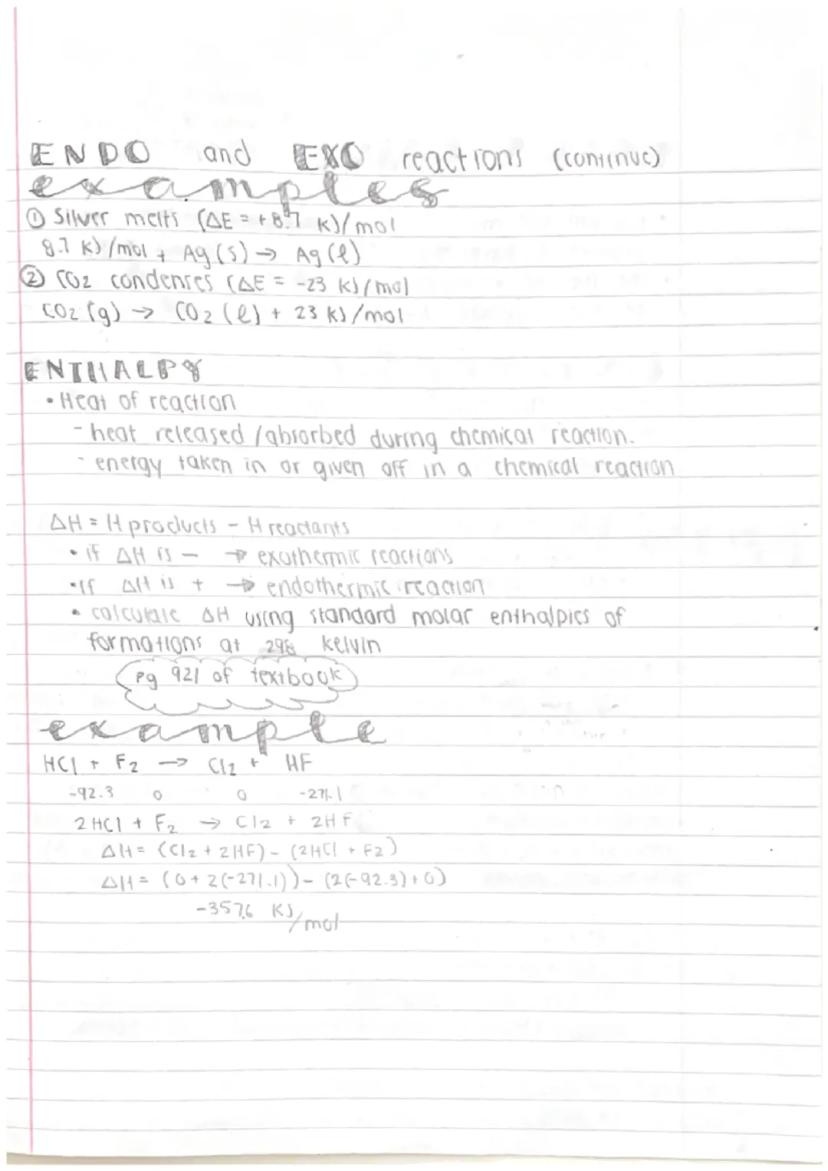 ENDO and EXO reactions (continue)
examples
① Silver melts (ΔE = +8.7 kJ/mol
8.7 kJ/mol + Ag(s) → Ag(l)
② CO2 condenses (ΔE = -23 kJ/mol
CO2(g) → CO2(l) + 23 kJ/mol
ENTHALPY
• Heat of reaction
- heat released /absorbed during chemical reaction.
- energy taken in or given off in a chemical reaction
ΔH = H products - H reactants
• if ΔH is - → exothermic reactions
• if ΔH is + → endothermic reaction
• calculate ΔH using standard molar enthalpies of
formations at 298 kelvin
pg 921 of textbook
example
HCl + F2 → Cl2 + HF
-92.3 0 0 -271.1
2HCl + F2 → Cl2 + 2HF
ΔH = (Cl2 + 2HF) - (2HCl + F2)
ΔH = (0 + 2(-271.1)) - (2(-92.3) + 0)
-357.6 KJ/mol